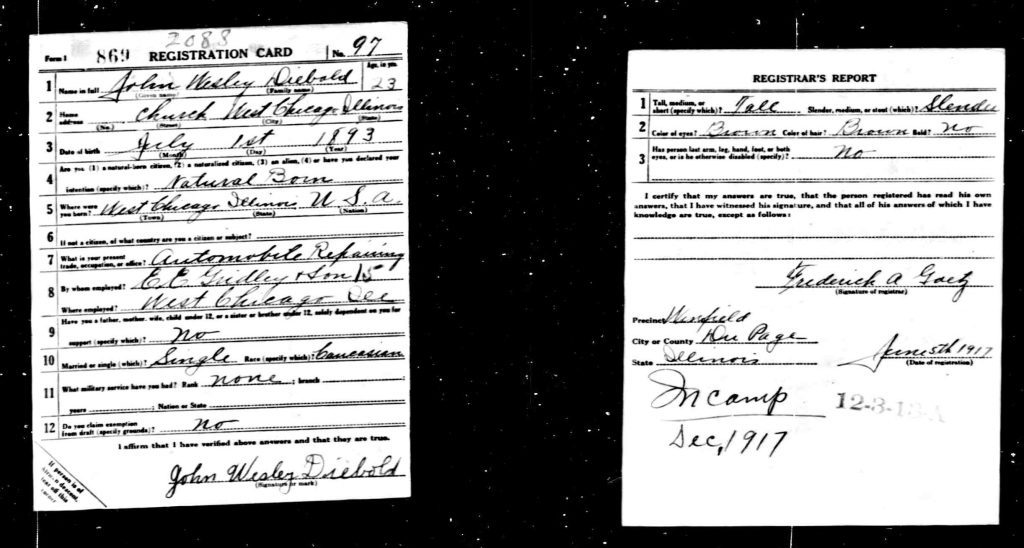 2088
Form 1 869 REGISTRATION CARD No. 97
1 Name in full John Wesley Diebold Age, in yrs. 23
(Given name) (Family name)
2 Home address Church West Chicago Illinois
(No.) (Street) (City) (State)
3 Date of birth July 1st 1893
(Month) (Day) (Year)
4 Are you (1) a natural-born citizen, (2) a naturalized citizen, (3) an alien, (4) or have you declared your
intention (specify which)? Natural Born
5 Where were you born? West Chicago Illinois U.S.A.
(Town) (State) (Nation)
6 If not a citizen, of what country are you a citizen or subject?
7 What is your present trade, occupation, or office? Automobile Repairing
8 By whom employed? E.E. Gridley & Son 15
Where employed? West Chicago Ill
9 Have you a father, mother, wife, child under 12, or a sister or brother under 12, solely dependent on you for
support (specify which)? No
10 Married or single (which)? Single Race (specify which)? Caucasian
11 What military service have you had? Rank none ; branch
years ; Nation or State
12 Do you claim exemption from draft (specify grounds)? No
I affirm that I have verified above answers and that they are true.
John Wesley Diebold
(Signature or mark)
If person is of
African descent,
tear off this
corner
REGISTRAR'S REPORT
1 Tall, medium, or short (specify which)? Tall Slender, medium, or stout (which)? Slender
2 Color of eyes? Brown Color of hair? Brown Bald? No
3 Has person lost arm, leg, hand, foot, or both
eyes, or is he otherwise disabled (specify)? No
I certify that my answers are true, that the person registered has read his own
answers, that I have witnessed his signature, and that all of his answers of which I have
knowledge are true, except as follows:
Frederick A Goetz
(Signature of registrar)
Precinct Winfield
City or County Du Page
State Illinois June 5th 1917
(Date of registration)
In camp
Dec, 1917
12-3-13-A